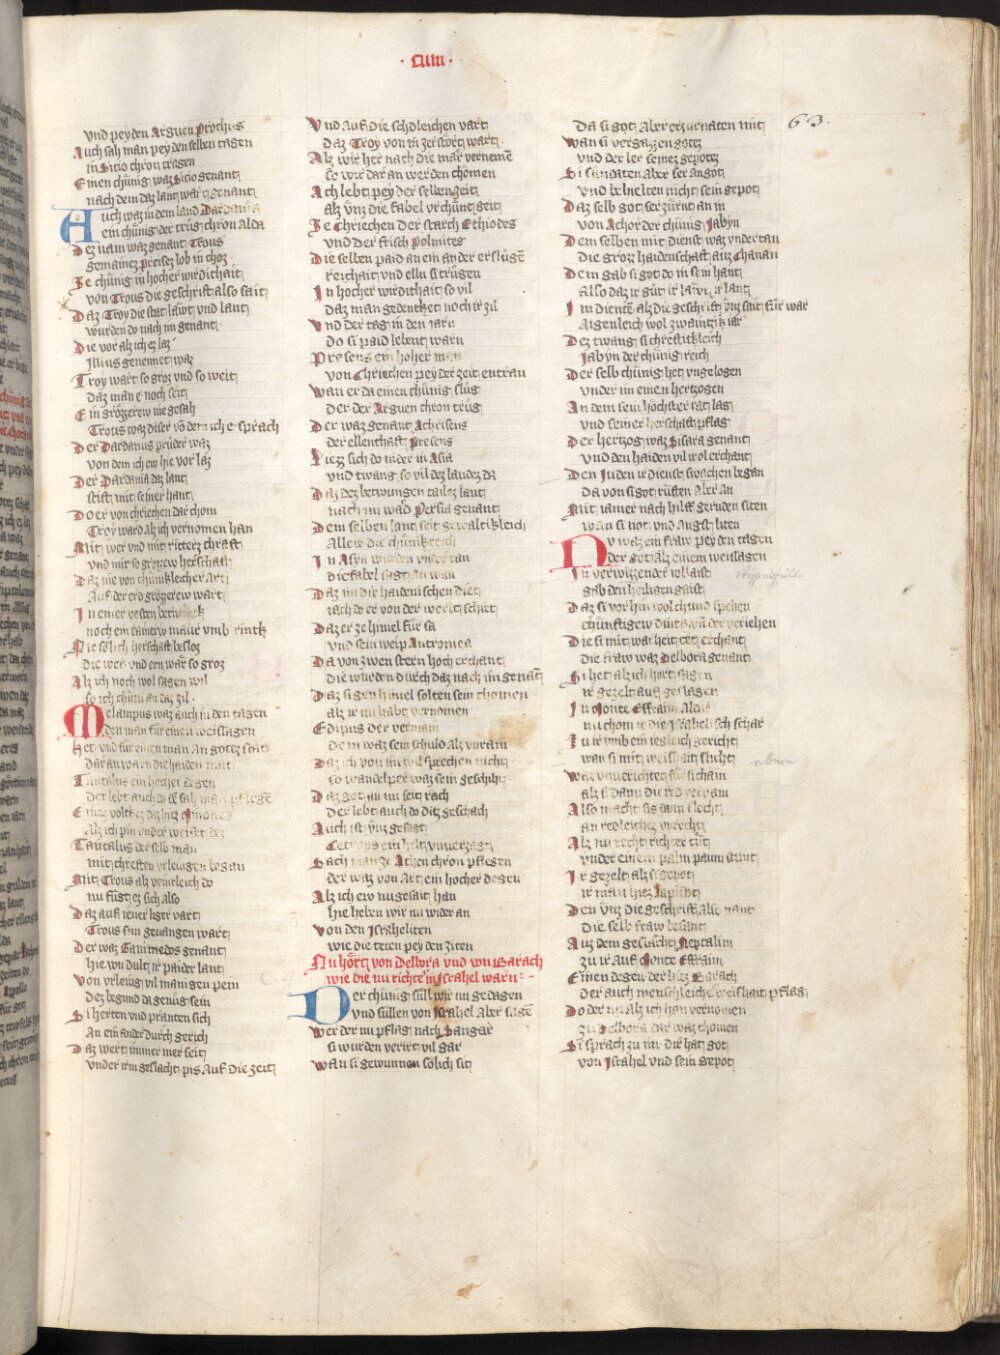 · cum ·
63.
vnd peyden Arguen Prochus
Auch sah man pey den selben tagen
in Sicio chron tragen
Einen chünig waz Sicio genant
nach dem daz lant wart genant
Auch waz in dem land Dardania
ein chünig der trüg chron alda
Dez nam waz genant Trous
gemainez preisez lob in choz
Se chünig in hocher wirdichait
von Trous die geschrift also sait
Daz Troy die stat lawt vnd laut
wurden do nach im genant
Die vor alz ich ez laz
Illius genennet waz
Troy wart so groz vnd so weit
daz man e noch seit
Ein grözzerew nie gesah
Trous waz diser võ dem ich e sprach
Der Dardanus prüder waz
von dem ich ew hie vor laz
Der Dardania daz lant
stift mit seiner hant
Do er von chriechen dar chom
Troy ward alz ich vernomen han
Mit wer vnd mit ritterz chraft
vnd mit so grozzew herschaft
Daz nie von chünikleicher art
Auf der erd grözzerew wart
In einer vesten
noch ein rainew maur vmb rinck
Nie sölich herschaft besloz
die wer vnd ern wär so groz
Alz ich noch wol sagen wil
so ich chüm an daz zil
Melampus waz auch in den tagen
den man für einen weissagen
Het vnd für einen man an gotez stat
daran warn die haiden mat
Tantalus ein hocher degen
der lebt auch do
Einez volchez diz hiez
Alz ich pin vnder weiset dez
Tantalus der selb man
mit chreften vrleugen began
Mit Trous alz veintleich do
nu fügt ez sich also
Daz auf iener liger vart
Trous sun gevangen wart
Der waz Ganimedes genant
hie wu dult ir paider lant
Von vrleug vil manigen pein
dez begund da genüg sein
Si herten vnd pranten sich
An ein ander durch gerich
Daz wert immer mer seit
vnder irm geslacht pis auf die zeit
Vnd Auf die schdleichen vart
daz Troy von in zerstört wart
Alz wir her nach die mär vernemē
so wir dar an werden chemen
Ach lebt pey der selben zeit
alz vnz die fabel vrchünt geit
Ze Chriechen der starch Ethiodes
vnd der frisch Polinites
Die selben paid an ein ander erslügē
reichait vnd ellu si trügen
In hocher wirdichait so vil
daz man gedencket noch ir zil
Vnd der tag in den iarn
do si paid lebent warn
Preseus ein hoher man
von Chriechen pey der zeit entran
Wan er da einen chünig slüg
der der Arguen chron trüg
Der waz genant Achrisens
der ellenthaft Preseus
Liezz sich do nider in Asia
vnd twang so vil dez landez da
Daz dez betwungen tailez lant
nach im ward Persia genant
Dem selben lant seit gewaltikleich
Allew die chünkreich
In Asya wurden vnder tan
die fabel sagt an wan
Daz im die haidenischen diet
nach do er von der werlt schiet
Daz er ze himel für sa
vnd sein weip Antromea
Da von zwen stern hoch erchant
die wurden durch daz nach im genāt
Daz si gen himel solten sein chomen
alz ir nu habt vernomen
Edipus der verman
dem waz sein schuld alz vnram
Daz ich von im wil sprechen nicht
so wandelper waz sein geschiht
Daz got an im seit rach
der lebt auch do ditz geschach
Auch ist vnz gesagt
Cecrops ein helt vnuerzagt
Sach man ze Athen chron pflegen
der waz von Art ein hocher degen
Alz ich ew nu gesait han
hie heben wir nu wider an
Von den Israheliten
wie die teten pey den ziten
Nu hört von Delbora vnd wu Barach
wie die nu richte in Israhel warn :-
Der chünig süll wir nu gedagen
vnd süllen von Israhel aber sagē
Wer der nu pflag nach Sangar
si wurden verirt vil gar
Wan si gewunnen sölich sit
da si got Aber erzurnaten mit
Wan si vergazzen gotez
vnd der ler seinez gepotez
Si sundaten Aber ser an got
vnd behielten nicht sein gepot
Daz selb got ser zürnt an in
von Achor der chünig Jabyn
Dem selben mit dienst waz vndertan
die groz haidenschaft auz Chanan
Dem gab si got do in sein hant
Also daz ir güt ir laut ir lant
In dienten alz die geschrift vnz sait für war
Aigenleich wol zwaintzk iar
Dez twang si chreftikleich
Jabyn der chünig reich
Der selb chünig het vngelogen
vnder im einen hertzogen
An dem sein höchster rat lag
vnd seiner herschaft pflag
Der hertzog waz Sisara genant
vnd den haiden vil wol erchant
Den Juden ir dienst swachen began
da von si got rüften Aber an
Mit iamer nach hilff gernden siten
wan si not vnd angst liten
Nv waz ein fraw pey den tagen
der got alz einem weissagen
In verwizzender vollaist
gab den heiligen gaist
Daz si vor hin wolch vnd spehen
chünftigew dinch wū der veriehen
Die si mit warheit tet erchant
die fraw waz Delbora genant
Si het alz ich hort sagen
ir gezelt auf geslagen
In Monte Effraim alda
nu chom ir die Israhelisch schar
Zu ir vmb ein iesleich gericht
wan si mit weishait slicht
Waz vnuerichtet für si cham
alz si dann die red vernam
Also macht sis dann slecht
an redleichez vnrecht
Alz nu recht richter tüt
vnder einem palm paum stünt
Ir gezelt alz si gepot
ir man hiez Lapidoth
Den vnz die geschrift also nant
die selb fraw besant
Auz dem geslächt Neptalim
zu ir auf Monte Effraim
Einen degen der hiez Barach
der auch menschleiche weishait pflag
Do der nu alz ich han vernomen
zu Delbora dar waz chomen
Si sprach zu im dir hat got
von Israhel vnd sein gepot